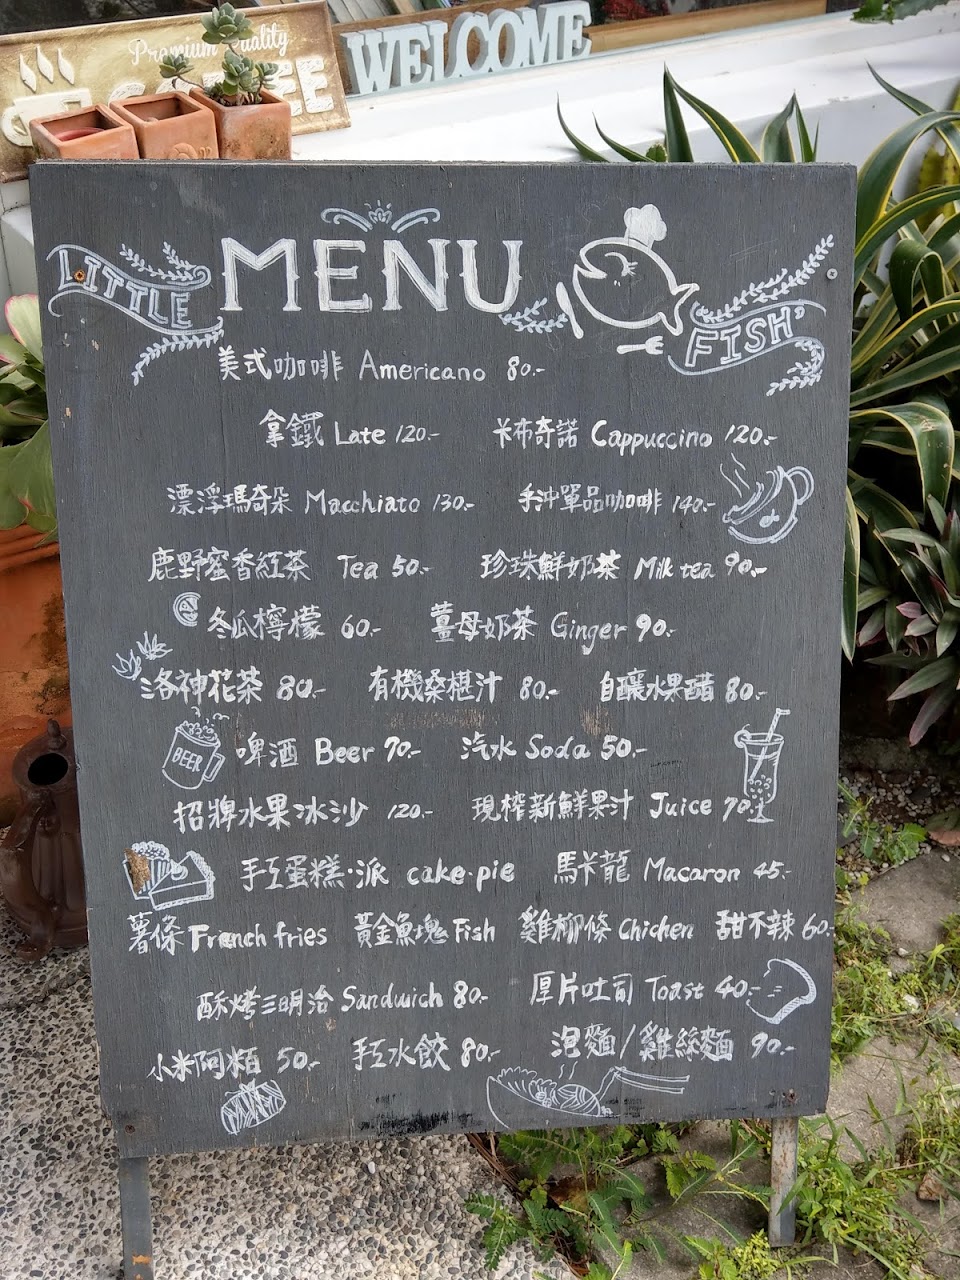 Premium Quality
COFFEE
WELCOME
LITTLE MENU FISH
美式咖啡 Americano 80.-
拿鐵 Late 120.- 卡布奇諾 Cappuccino 120.-
漂浮瑪奇朵 Macchiato 130.- 手沖單品咖啡 140.-
鹿野蜜香紅茶 Tea 50.- 珍珠鮮奶茶 Milk tea 90.-
冬瓜檸檬 60.- 薑母奶茶 Ginger 90.-
洛神花茶 80.- 有機桑椹汁 80.- 自釀水果醋 80.-
BEER 啤酒 Beer 70.- 汽水 Soda 50.-
招牌水果冰沙 120.- 現榨新鮮果汁 Juice 70.-
手工蛋糕·派 cake·pie 馬卡龍 Macaron 45.-
薯條 French fries 黃金魚塊 Fish 雞柳條 Chichen 甜不辣 60.-
酥烤三明治 Sandwich 80.- 厚片吐司 Toast 40.-
小米阿粨 50.- 手工水餃 80.- 泡麵/雞絲麵 90.-